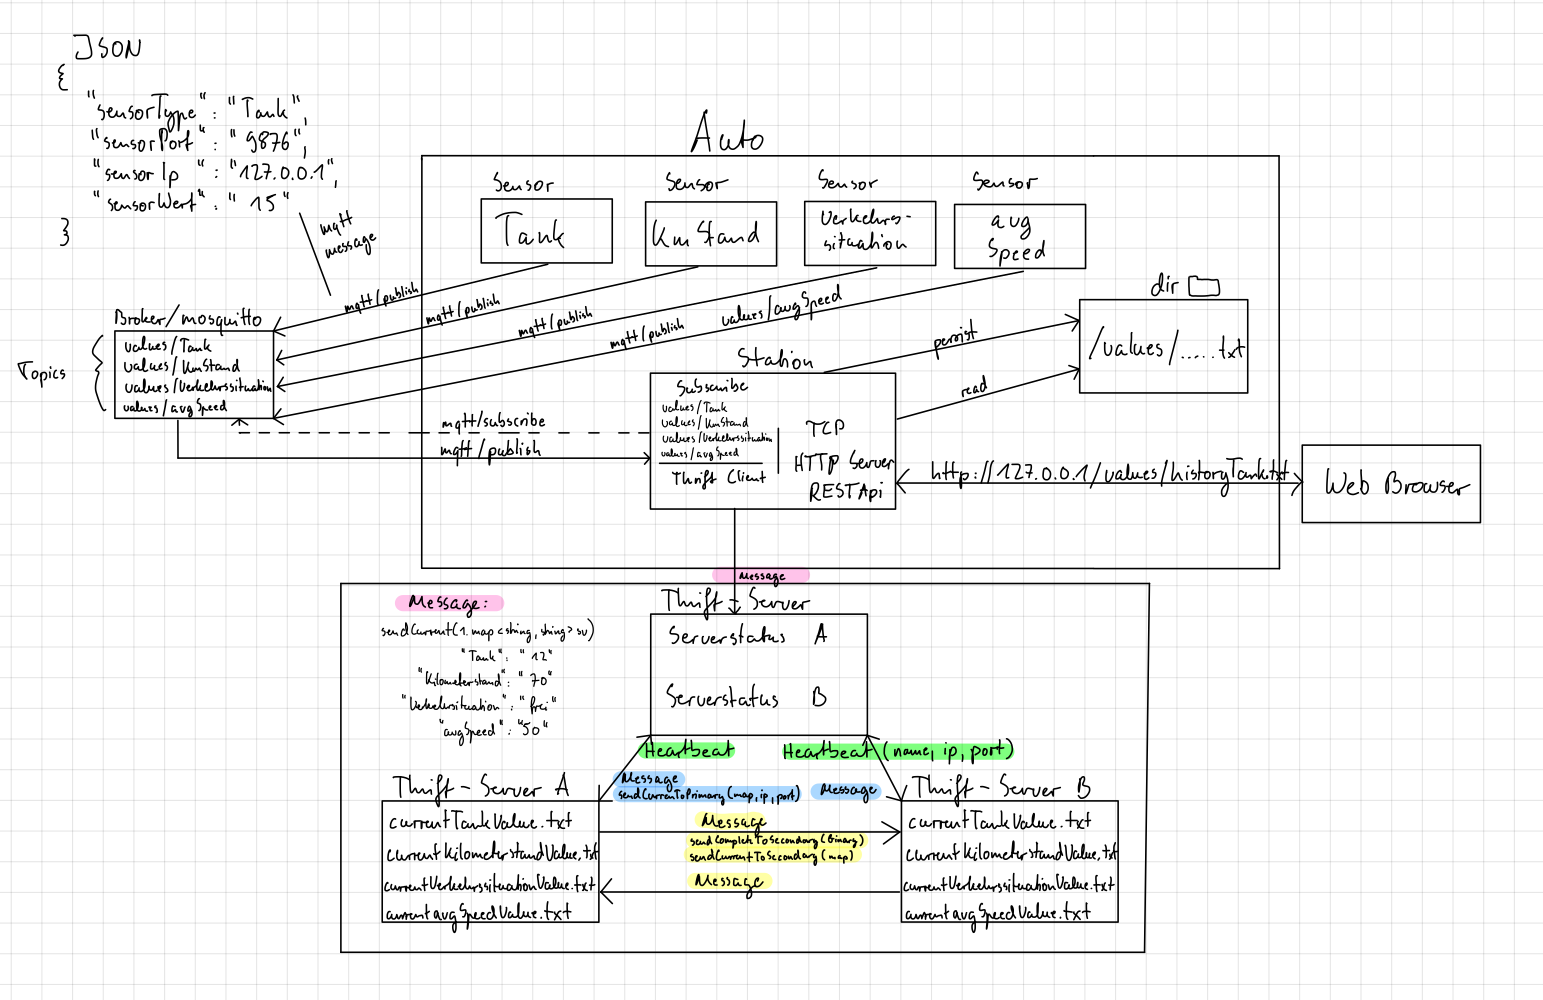 JSON
{
"sensorType" : "Tank",
"sensorPort" : "9876",
"sensorIp " : "127.0.0.1",
"sensorWert" : "15"
}
mqtt
message
Auto
Sensor
Tank
Sensor
Km Stand
Sensor
Verkehrs-
situation
Sensor
avg
Speed
dir
/values/.....txt
mqtt/publish
mqtt/publish
mqtt/publish
mqtt/publish
values/avgSpeed
Broker/mosquitto
Topics
values/Tank
values/KmStand
values/Verkehrssituation
values/avgSpeed
persist
read
Station
Subscribe
values/Tank
values/KmStand
values/Verkehrssituation
values/avgSpeed
Thrift Client
TCP
HTTP Server
RESTApi
mqtt/subscribe
mqtt/publish
http://127.0.0.1/values/historyTank.txt
Web Browser
Message
Message:
sendCurrent(1.map<string,string> sv)
"Tank": "12"
"Kilometerstand": "70"
"Verkehrsituation": "frei"
"avgSpeed": "50"
Thrift - Server
Serverstatus A
Serverstatus B
Heartbeat
Heartbeat (name, ip, port)
Message
sendCurrenToPrimary(map,ip,port)
Message
Thrift - Server A
currentTankValue.txt
currentKilometerstandValue.txt
currentVerkehrssituationValue.txt
currentavgSpeedValue.txt
Message
sendCompleteToSecondary(Binary)
sendCurrentToSecondary(map)
Message
Thrift - Server B
currentTankValue.txt
currentKilometerstandValue.txt
currentVerkehrssituationValue.txt
currentavgSpeedValue.txt